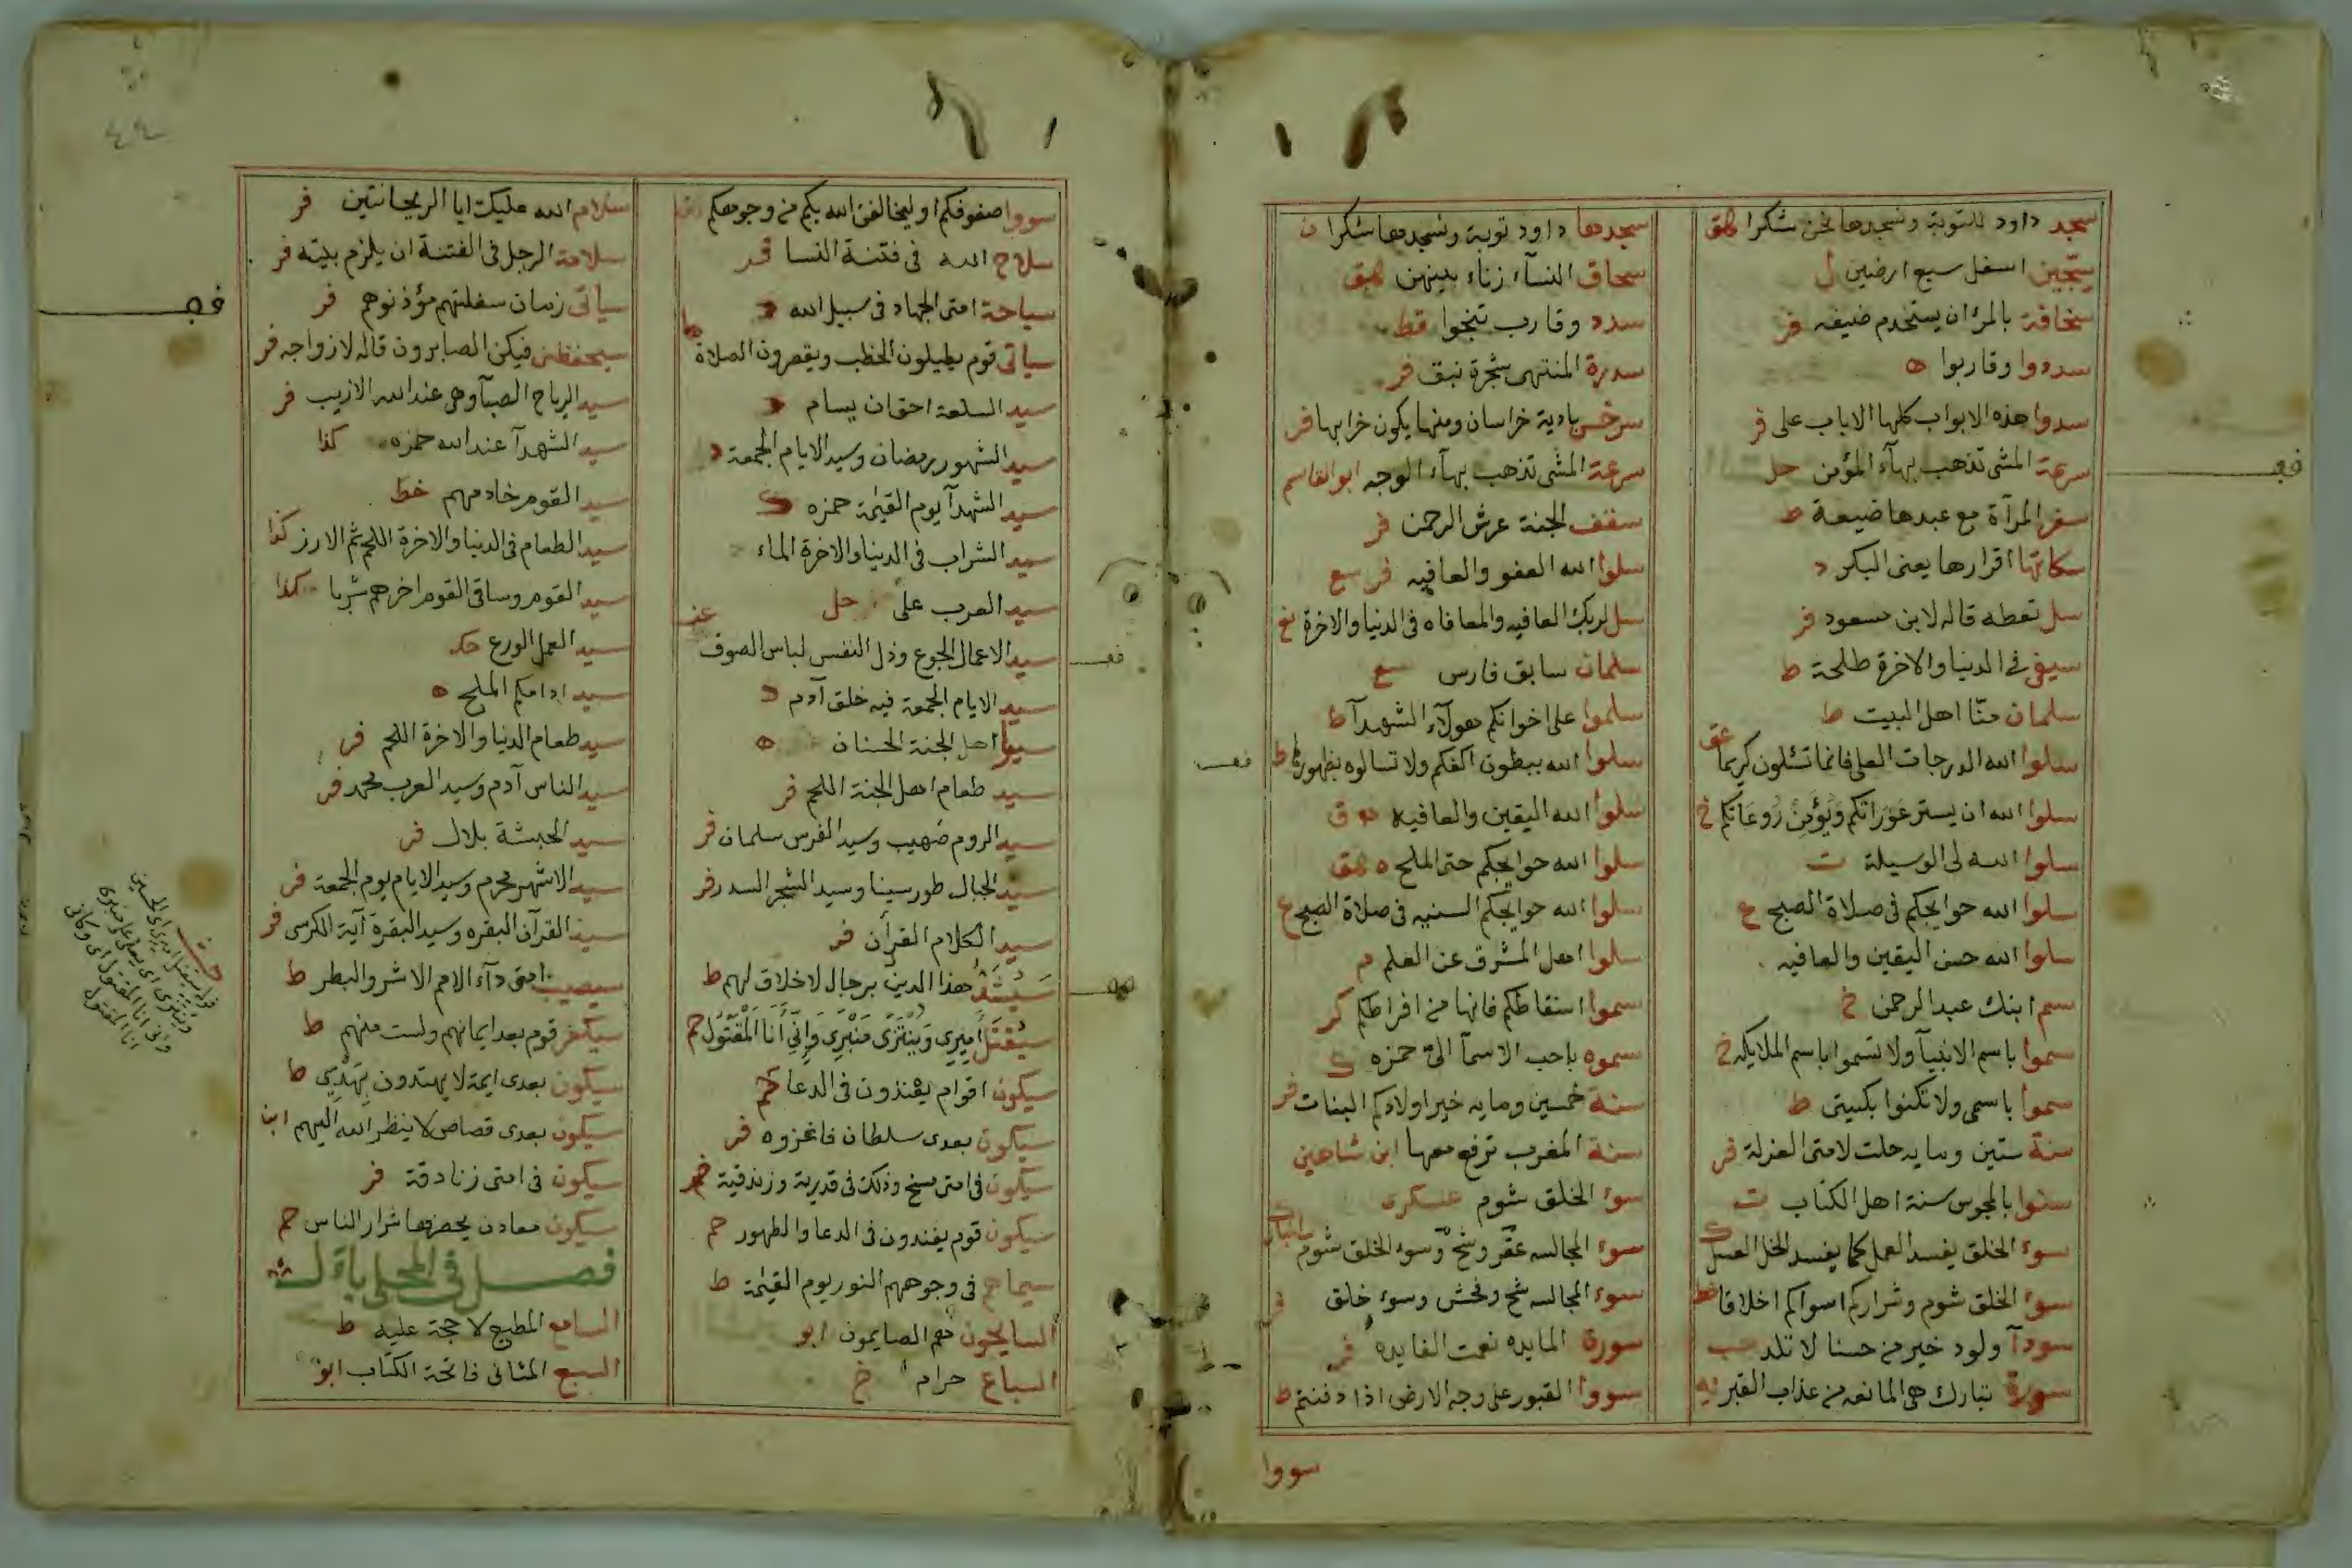 سجد داود للتوبة ونسجدها نحن شكرا هق
سجين اسفل سبع ارضين ل
سخافة بالمرء ان يستخدم ضيفه فر
سددوا وقاربوا ه
سدوا هذه الابواب كلها الا باب على فر
سرعة المشى تذهب ببهآء المؤمن حل
سفر المرآة مع عبدها ضيعة ط
سكاتها اقرارها يعنى البكر د
سل تعطه قاله لابن مسعود فر
سيفى فى الدنيا والاخرة طلحة ط
سلمان منّا اهل البيت ط
سلوا الله الدرجات العلى فانما تسئلون كريما
سلوا الله ان يستر عَوَرَاتكم ويُؤمن رُوعَاتكم خ
سلوا الله لى الوسيلة ت
سلوا الله حوايجكم فى صلاة الصبح ع
سلوا الله حسن اليقين والعافيه
سم ابنك عبد الرحمن خ
سموا باسم الانبيآ ولا تسموا باسم الملايكه خ
سموا باسمى ولا تكنوا بكنيتى ط
سنة ستين ومايه حلت لامتى العزلة فر
سنوا بالمجوس سنة اهل الكتاب ت
سوء الخلق يفسد العمل كما يفسد الخل العسل
سوء الخلق شوم وشراركم اسواكم اخلاقا خط
سودآ ولود خير من حسنا لا تلد حب
سورة تبارك هى المانعه من عذاب القبر
سجدها داود توبة ونسجدها شكرا ن
سحاق النسآء زناء بينهن هق
سدد وقارب تنجوا قط
سدرة المنتهى شجرة نبق فر
سرخس بادية خراسان ومنها يكون خرابها فر
سرعة المشى تذهب ببهآء الوجه ابو القاسم
سقف الجنة عرش الرحمن فر
سلوا الله العفو والعافيه فر سع
سل لربك العافيه والمعافاه فى الدنيا والاخرة
سلمان سابق فارس سع
سلموا على اخوانكم هولآء الشهدآ ط
سلوا الله ببطون اكفكم ولا تسالوه بظهورها ط
سلوا الله اليقين والعافيه
سلوا الله حوايجكم حتى الملح ه هق
سلوا الله حوايجكم السنيه فى صلاة الصبح ع
سلوا اهل المشرق عن العلم م
سموا اسقاطكم فانها من افراطكم كر
سموه باحب الاسمآ الىّ حمزه ك
سنة خمسين ومايه خير اولادكم البنات فر
سنة المغرب ترفع معها ابن شاهين
سوء الخلق شوم عسكرى
سوء المجالسه عقر وشح وسوء الخلق شوم
سوء المجالسه شح وفحش وسوء خلق
سورة المايده نعمت الفايده فر
سووا القبور على وجه الارض اذا دفنتم ط
سووا
سووا صفوفكم او ليخالفن الله بكم من وجوهكم
سلاح الله فى فتنة النسا فر
سياحة امتى الجهاد فى سبيل الله د
سياتى قوم يطيلون الخطب ويقصرون الصلاة
سيد السلعة احق ان يسام د
سيد الشهور رمضان وسيد الايام الجمعة د
سيد الشهدآ يوم القيٰمة حمزه ك
سيد الشراب فى الدنيا والاخرة الماء
سيد العرب على حل
سيد الاعمال الجوع وذل النفس لباس الصوف
سيد الايام الجمعة فيه خلق آدم د
اهل الجنة الحسنان ه
سيد طعام اهل الجنة اللحم فر
سيد الروم صهيب وسيد الفرس سلمان فر
سيد الجبال طور سينا وسيد الشجر السدر فر
سيد الكلام القرآن فر
سيشد هذا الدين برجال لا خلاق لهم ط
سيُقتل أميرى وينتزى منبرى وإنى أنا المقتول حم
سيكون اقوام يعتدون فى الدعا حم
سيكون بعدى سلطان فانحزوه فر
سيكون فى امتى مسخ وذلك فى قدرية وزندقية حم
سيكون قوم يعتدون فى الدعا والطهور حم
سيماهم فى وجوههم النور يوم القيٰمة ط
السايحون هم الصايمون ابو
السباع حرام خ
سلام الله عليك ابا الريحانتين فر
سلامة الرجل فى الفتنة ان يلزم بيته فر
سياتى زمان سفلتهم مؤذنوهم فر
سيحفظنى فيكن الصابرون قاله لازواجه فر
سيد الرياح الصبآ وهى عند الله الازيب فر
سيد الشهدآ عند الله حمزه كذا
سيد القوم خادمهم خط
سيد الطعام فى الدنيا والاخرة اللحم ثم الارز كذا
سيد القوم وساقى القوم اخرهم شربا كذا
سيد العمل الورع حك
سيد ادامكم الملح ه
سيد طعام الدنيا والاخرة اللحم فر
سيد الناس آدم وسيد العرب محمد فر
سيد الحبشة بلال فر
سيد الاشهر محرم وسيد الايام يوم الجمعة فر
سيد القرآن البقره وسيد البقرة آية الكرسى فر
سيصيب امتى دآء الامم الاشر والبطر ط
سيكفر قوم بعد ايمانهم ولست منهم ط
سيكون بعدى ايمة لا يهتدون بهديى ط
سيكون بعدى قصاص لا ينظر الله اليهم ابن
سيكون فى امتى زنادقة فر
سيكون معادن يحضرها شرار الناس حم
فصل فى المحلى بال
السامع المطيع لا حجة عليه ط
السبع المثانى فاتحة الكتاب ابو